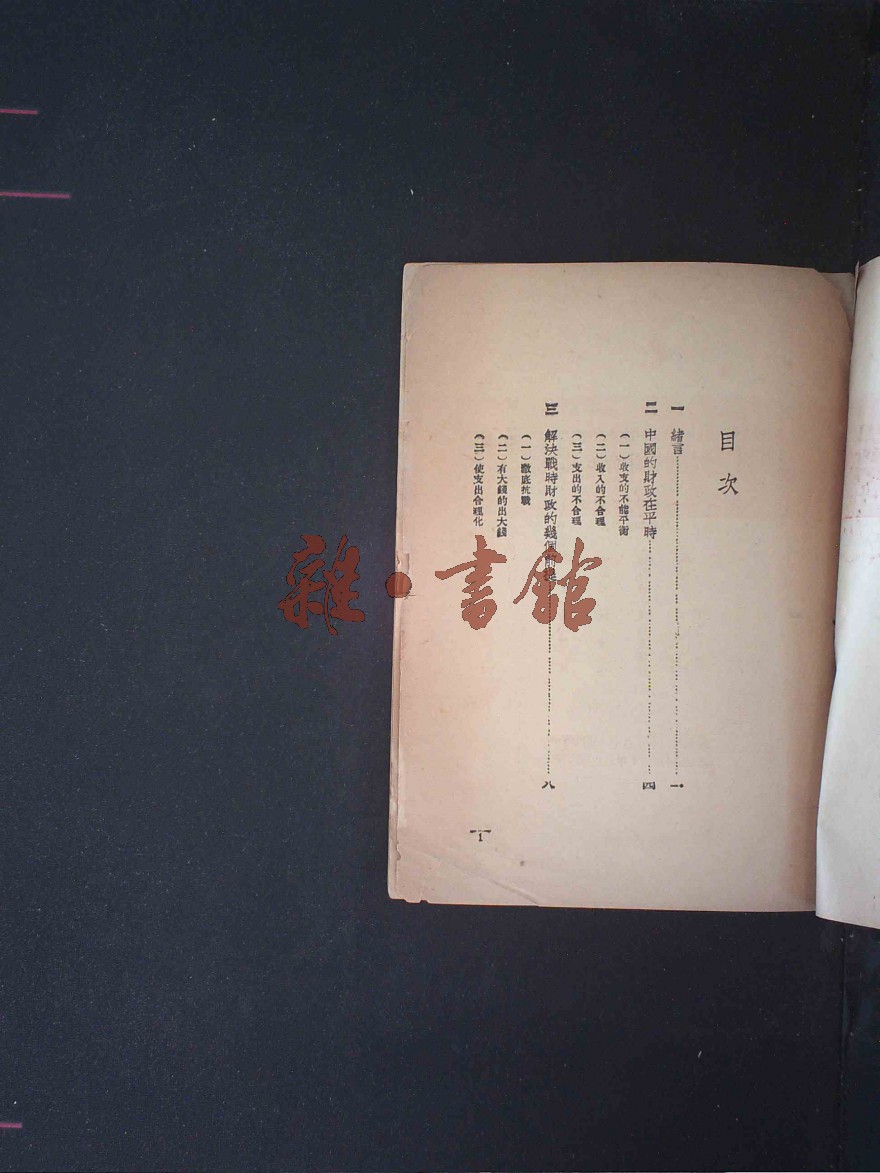 目次
一 緒言……一
二 中國的財政在平時……四
(一)收支的不能平衡
(二)收入的不合理
(三)支出的不合理
三 解決戰時財政的幾個前提……八
(一)澈底抗戰
(二)有大錢的出大錢
(三)使支出合理化
1
雜·書館